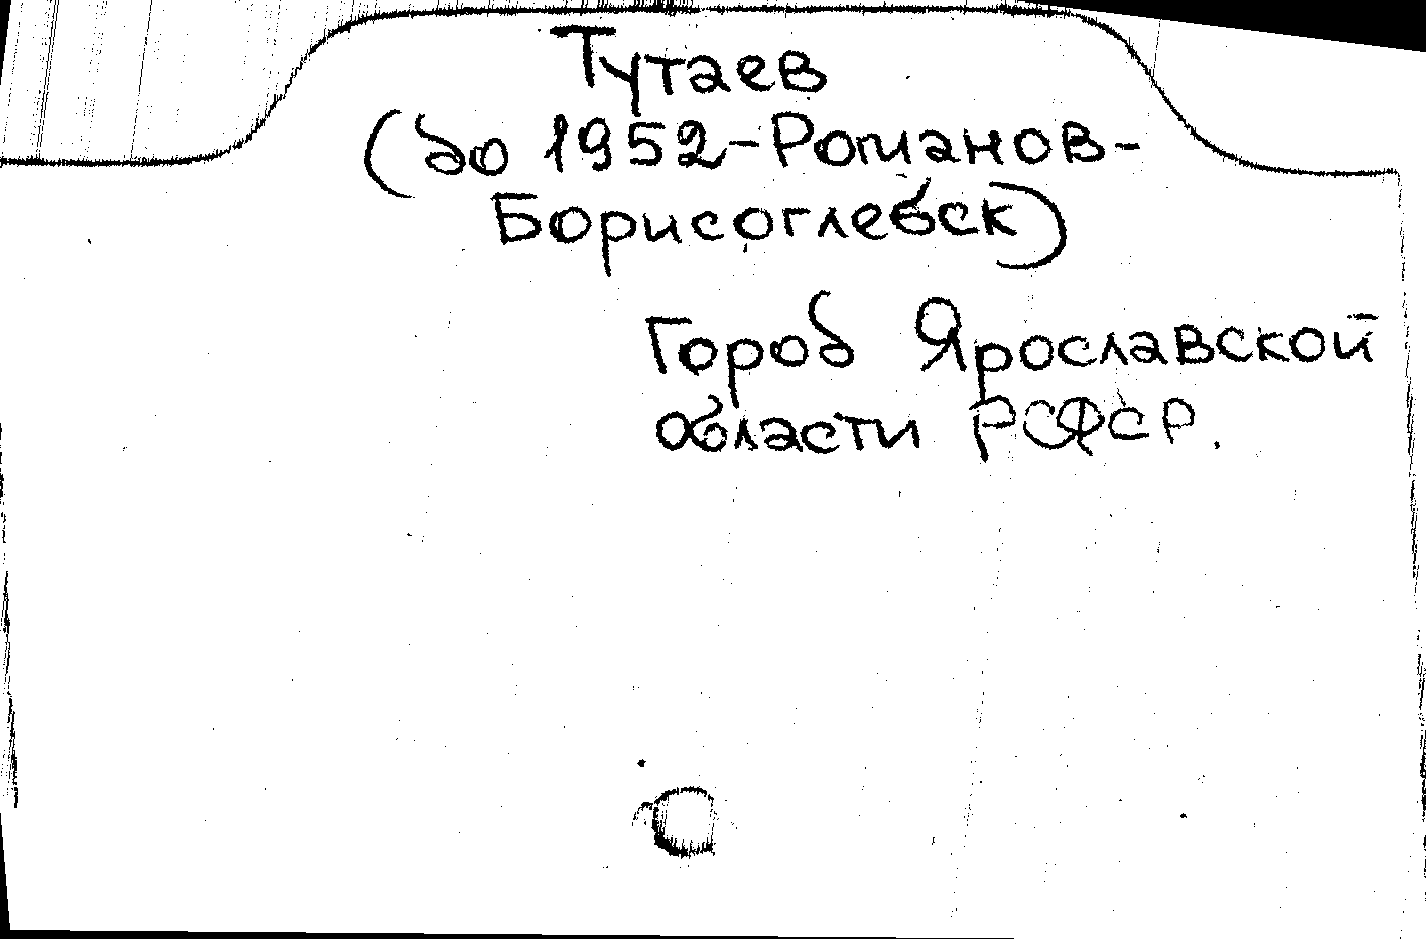 Тутаев
(до 1952-Романов-
Борисоглебск)
Город Ярославской
области РСФСР.